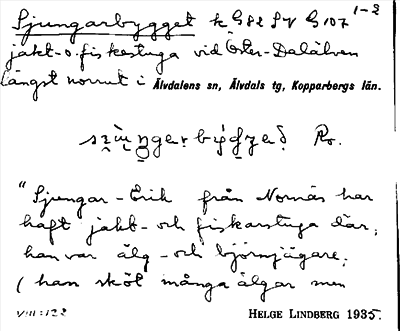 Sjungarbygget k G82 SV G107 1-2
jakt- o. fiskestuga vid Öster-Dalälven
längst norrut i Älvdalens sn, Älvdals tg, Kopparbergs län.
Ro.
"Sjungar-Erik från Nornäs har
haft jakt- och fiskarstuga där;
han var älg- och björnjägare;
(han sköt många älgar men
VIII:122 HELGE LINDBERG 1935.